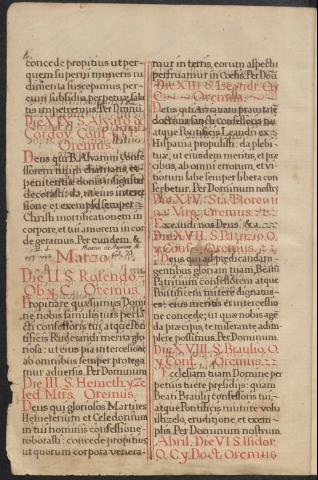 concede propitius ut per
quem superni muneris ru
dimenta suscepimus, per
eum subsidia perpetuæ salu
tis impetremus. Per Dominū
Die XIX. S. Alvaro de
Cordov. Conf. Or.
Oremus.
Deus qui B. Alvarum confe
ssorem tuum charitatis, et
penitentiæ donis
decorasti: da, ut eius interce
ssione et exemplo semper
Christi mortificationem in
corpore, et tui amorem in cor
de geramus. Per eumdem, &
Marzo
Die II. S. Rosendo,
Ob. y C. Oremus.
Propitiare quæsumus Domi
ne nobis famulis tuis per Sā
cti confessoris tui, atque Pon
tificis Rudesindi merita glo
riosa: ut eius pia intercessione
ab omnibus semper protega
mur adversis. Per Dominum
Die III. S. Hemeth. y Ce
led. Mtrs. Oremus.
Deus qui gloriosos Martires
Hemeterium et Celedonium
in tui nominis confessione
roborasti: concede propitius
ut quorum corpora venera-
mur in terris, eorum aspectu
perfruamur in Cœlis. Per Dom
Die XIII. S. Leandr. Ob
Oremus.
Deus qui Arrianam pravitatē
doctrina sancti confessoris tui
atque Pontificis Leandri ex
Hispania propulisti: da plebi
tuæ, ut eiusdem meritis, et pre
cibus, ab omni errorum, et vi
tiorum labe semper libera con
servetur. Per Dominum nostrū
Die XIV. Sta. Florenti
na Virg. Oremus.
Exaudi nos Deus, & a.
Die XVII. S. Patrizio O.
y Conf. Oremus.
Deus qui ad prædicandam
gentibus gloriam tuam, Beati
Patritium confessorem atque
Pontificem mittere dignatus
est: eius meritis et intercessio
ne concede; ut quæ nobis agē
da præcipis, te miserante, adim
plere possimus. Per Dominum
Die XVIII. S. Braulio, O.
y Conf. Oremus.
Ecclesiam tuam Domine per
petuis tuere præsidiis: quam
Beati Braulij confessoris tui,
atque Pontificis munire volu
isti zelo, eruditione, et exem
plis. Per Dominum nostrum
Abril, Die VI. S. Isidor.
O. C. y Doct. Oremus